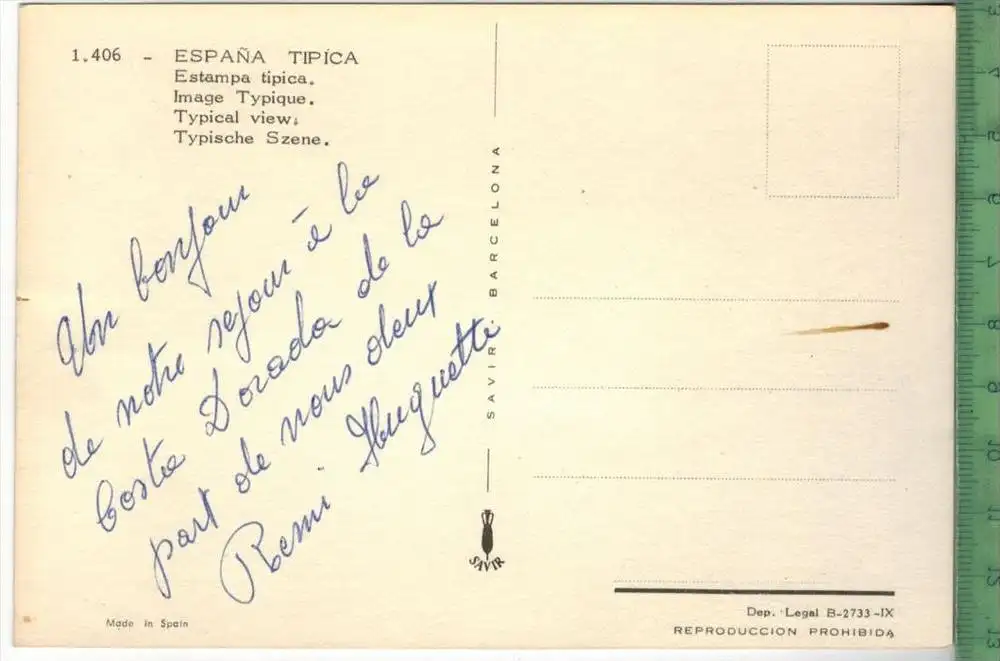 1.406 - ESPAÑA TIPICA
Estampa tipica.
Image Typique.
Typical view.
Typische Szene.
Un bonjour
de notre sejour à la
Costa Dorada de la
part de nous deux
Remi Huguette
SAVIR. BARCELONA
SAVIR
Made in Spain
Dep. Legal B-2733-IX
REPRODUCCION PROHIBIDA